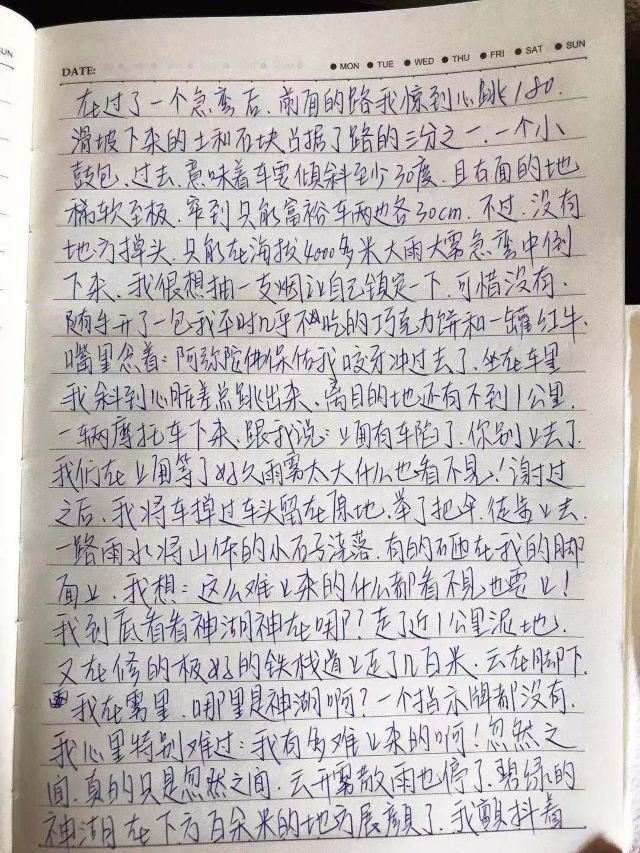 UN
DATE:
● MON ● TUE ● WED ● THU ● FRI ● SAT ● SUN
在过了一个急弯后、前面的路我惊到心跳180.
滑坡下来的土和石块占据了路的三分之一、一个小
鼓包、过去、意味着车要倾斜至少30度、且右面的地
稀软至极、窄到只能富裕车两边各30cm、不过、没有
地方掉头、只能在海拔4000多米大雨大雾急弯中倒
下来、我很想抽一支烟让自己镇定一下、可惜没有.
随手开了一包我平时几乎不吃的巧克力饼和一罐红牛
嘴里念着:阿弥陀佛保佑我咬牙冲过去了、坐在车里
我斜到心脏差点跳出来、离目的地还有不到1公里、
一辆摩托车下来、跟我说:上面有车陷了、你别上去了
我们在上面等了好久雨雾太大什么也看不见!谢过
之后、我将车掉过车头留在原地、举了把伞、徒步上去、
一路雨水将山体的小石子浇落、有的砸在我的脚
面上、我想:这么难上来的什么都看不见也要上!
我到底看看神湖神在哪?走了近1公里泥地、
又在修的极好的铁栈道上走了几百米、云在脚下、
我在雾里、哪里是神湖啊?一个指示牌都没有、
我心里特别难过:我有多难上来的啊!忽然之
间、真的只是忽然之间、云开雾散雨也停了、碧绿的
神湖在下方百余米的地方展颜了、我颤抖着